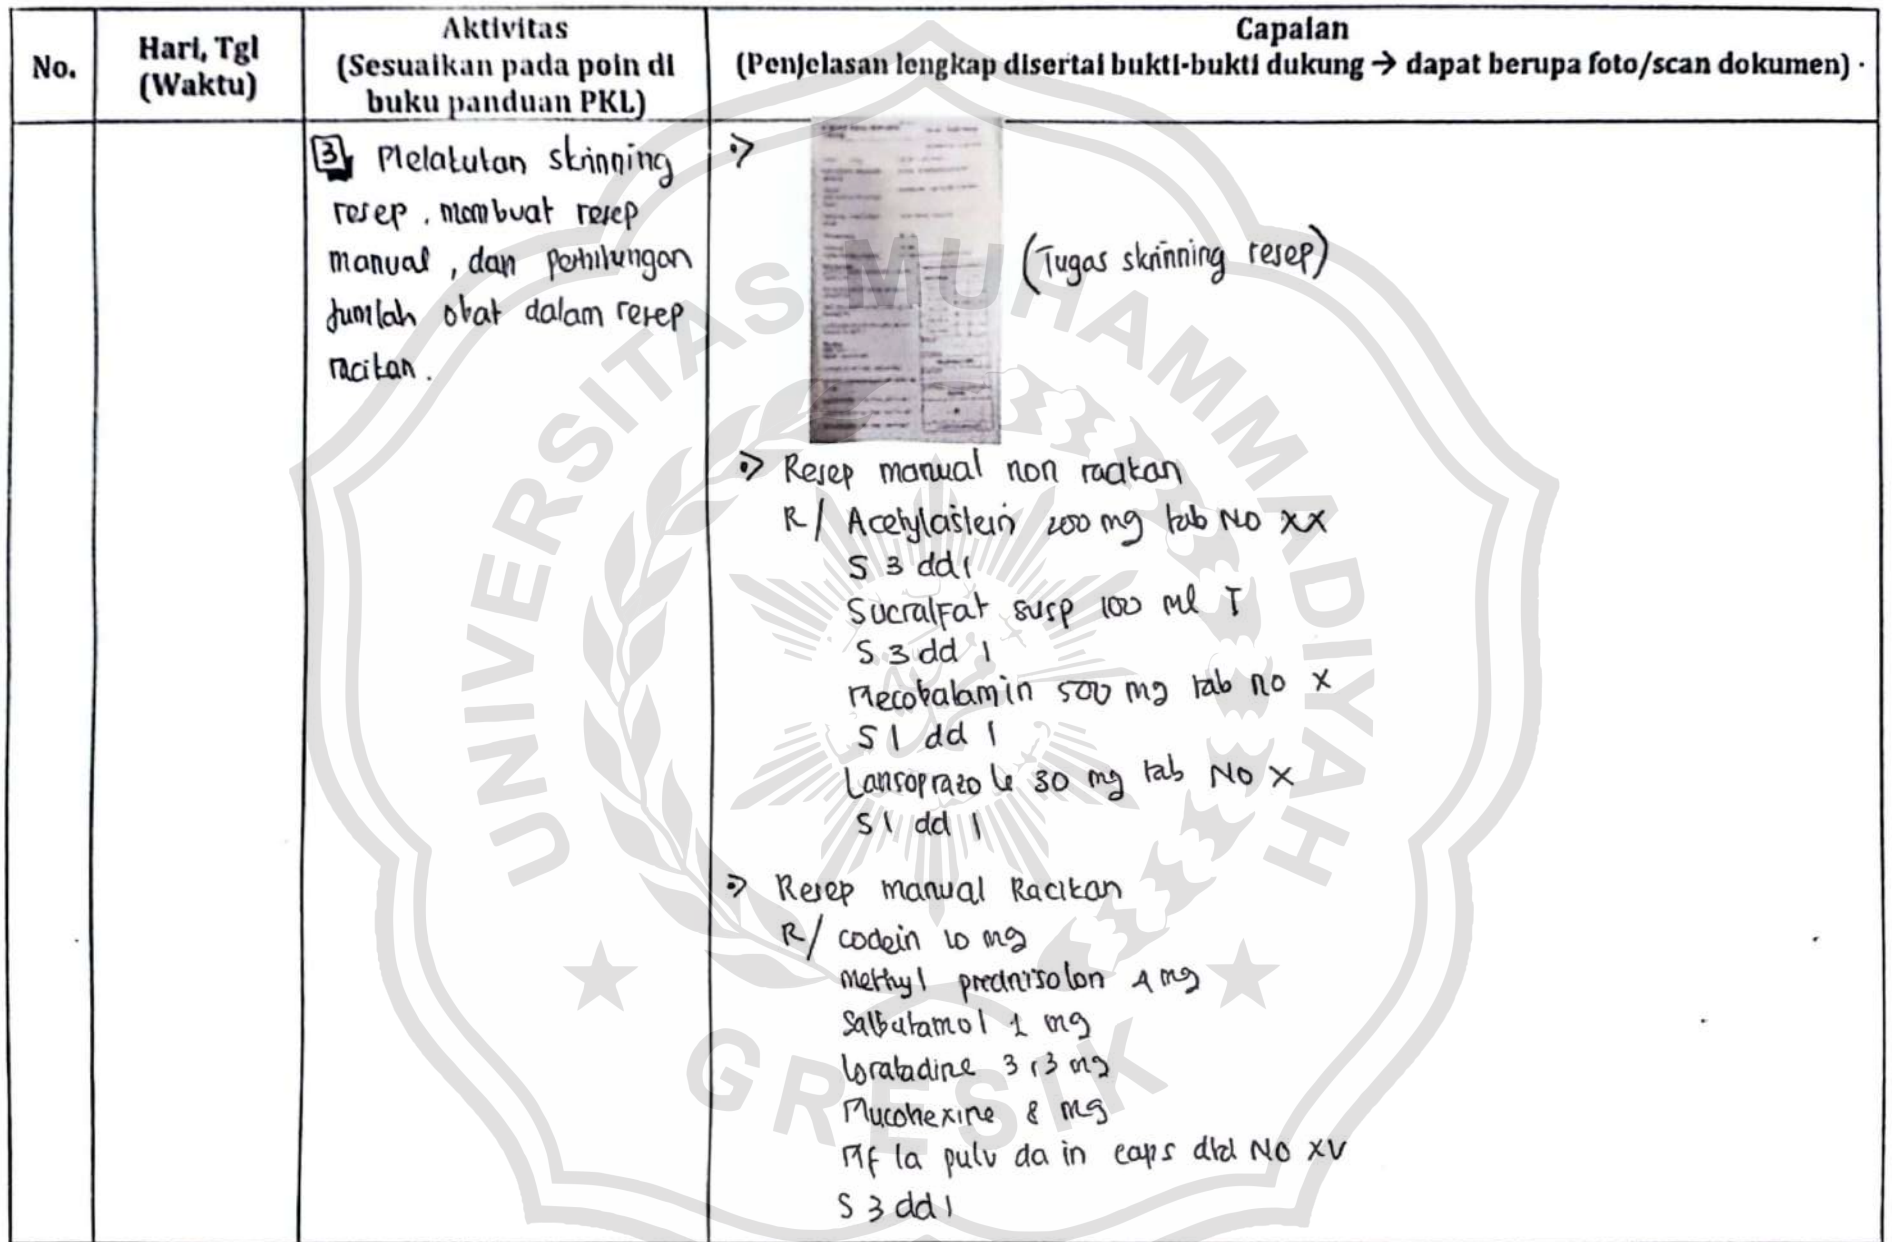 No.
Hari, Tgl
(Waktu)
Aktivitas
(Sesuaikan pada poin di
buku panduan PKL)
Capaian
(Penjelasan lengkap disertai bukti-bukti dukung → dapat berupa foto/scan dokumen)
3, Melakukan skrinning
resep, membuat resep
manual, dan perhitungan
Jumlah obat dalam resep
racikan.
(Tugas skrinning resep)
Resep manual non racikan
R/ Acetylcistein 200 mg tab NO XX
S 3 dd 1
Sucralfat susp 100 ml I
S 3 dd 1
Mecobalamin 500 mg tab no X
S 1 dd 1
Lansoprazole 30 mg tab NO X
S 1 dd 1
Resep manual Racikan
R/ codein 10 mg
Methyl prednisolon 4 mg
Salbutamol 1 mg
Loratadine 3,3 mg
Mucohexine 8 mg
Mf la pulv da in caps dtd NO XV
S 3 dd 1
UNIVERSITAS MUHAMMADIYAH
GRESIK